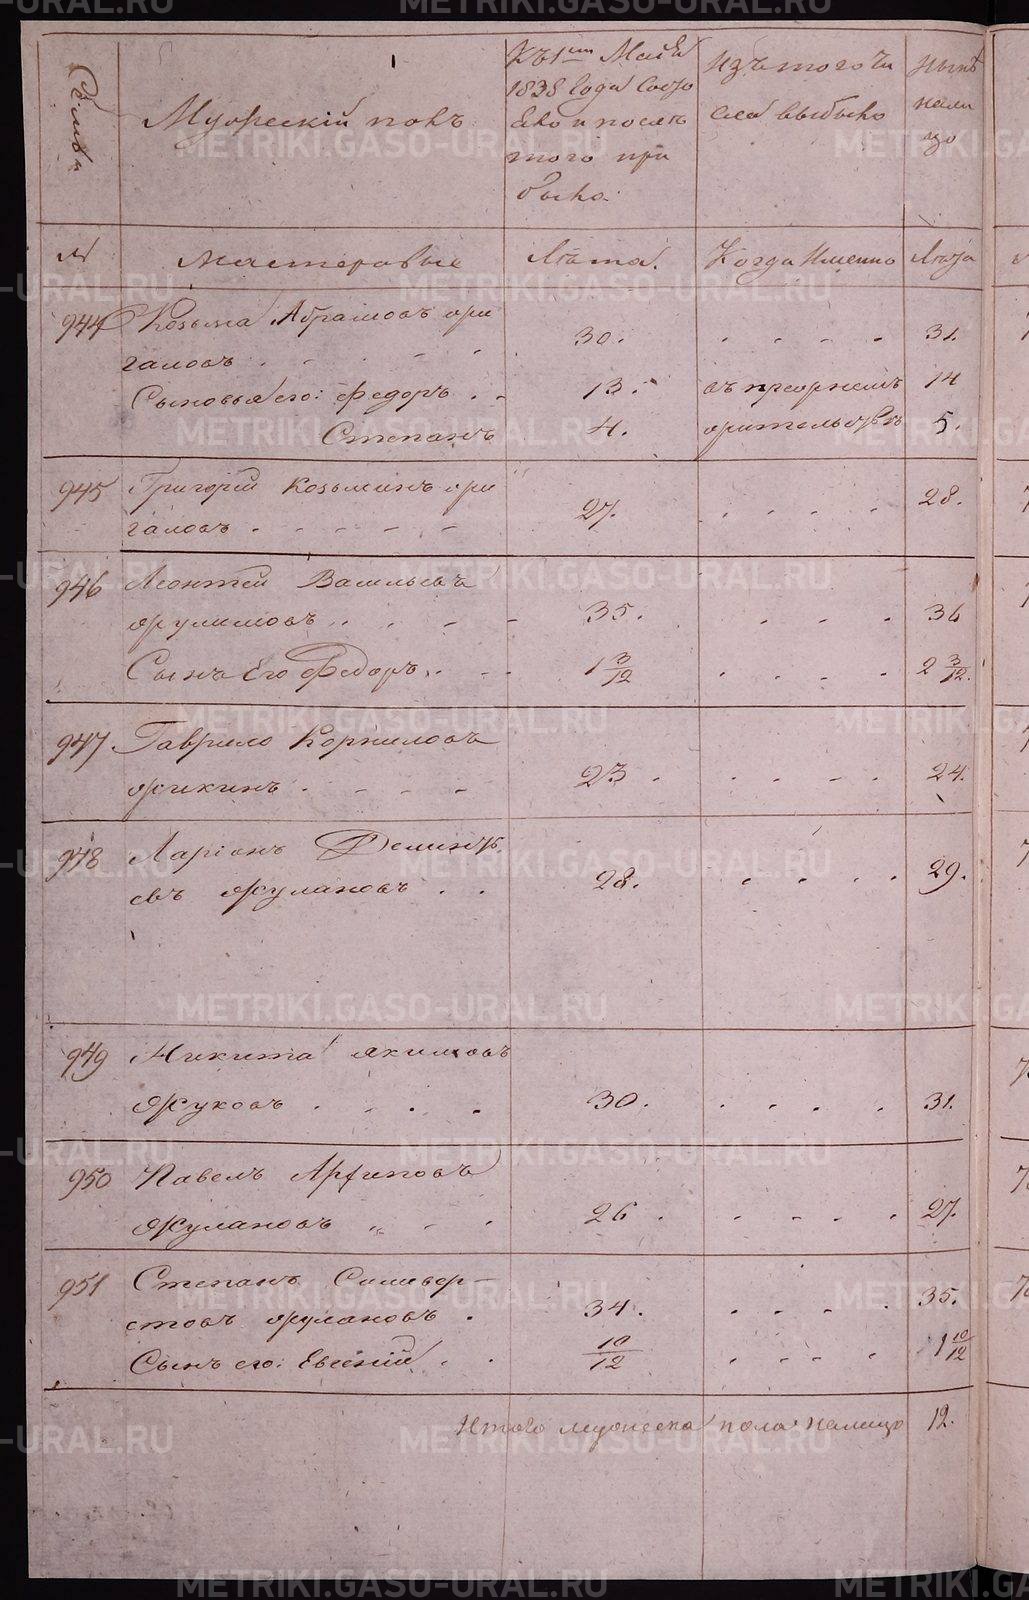 Семьи
Мужескій полъ
Къ 1му Маія
1838 Года Состо
яло и послѣ
того при
было.
Изъ того чи
сла выбыло
Нынѣ
нали
цо
№
Мастеровые
Лѣта.
Когда Именно
Лѣта
944
Козьма Абрамовъ жи
галовъ . . . . 30. . . . . 31.
Сыновья его: Федоръ . . 13. въ прежнемъ 14
Степанъ 4. жительствѣ 5.
945
Григорій Козьминъ жи
галовъ . . . . . 27. . . . . 28.
946
Леонтей Васильевъ
. . . . 35. . . . 36
Сынъ Его Федоръ . . . 1 3/12 . . . . 2 3/12.
947
Гаврило Корниловъ
жикинъ . . . . 23. . . . . 24.
948
Ларіонъ Дементье
въ Жулановъ . . 28. . . . . 29.
949
Никита Якимовъ
Жуковъ . . . . 30. . . . . 31.
950
Павелъ Архиповъ
Жулановъ „ . . 26. . . . . 27.
951
Степанъ Селивер-
стовъ жулановъ . 34. . . . . 35.
Сынъ его: Евгеній . . 10/12 . . . . 1 10/12
Итого мужеска пола налицо 12.
METRIKI.GASO-URAL.RU